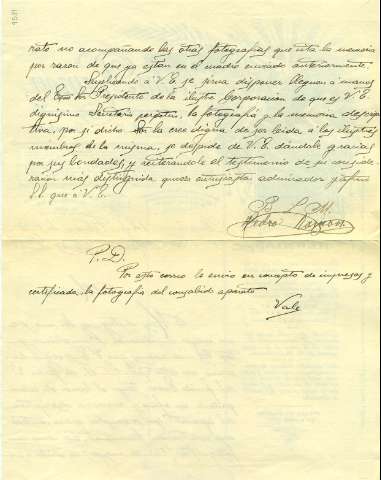 rato no acompañando las otras fotografías que cita la memoria
por razon de que ya estan en el cuadro enviado anteriormente.
Suplicando á V.E. se sirva disponer lleguen á manos
del Presidente de la ilustre Corporacion de que es V.E.
dignísimo Secretario perpetuo, la fotografía y la memoria descrip
tiva, por si dicho la cree digna de ser leida á los ilustres
miembros de la misma, se despide de V.E. dándole gracias
por sus bondades, y reiterándole el testimonio de su conside
racion mas distinguida quien entusiasta admirador y afmo
S.S. que á V.E.
B. L. M.
Pedro
P.D.
Por esto correo le envio en concepto de impresos y
certificado, la fotografía del consabido aparato
Vale